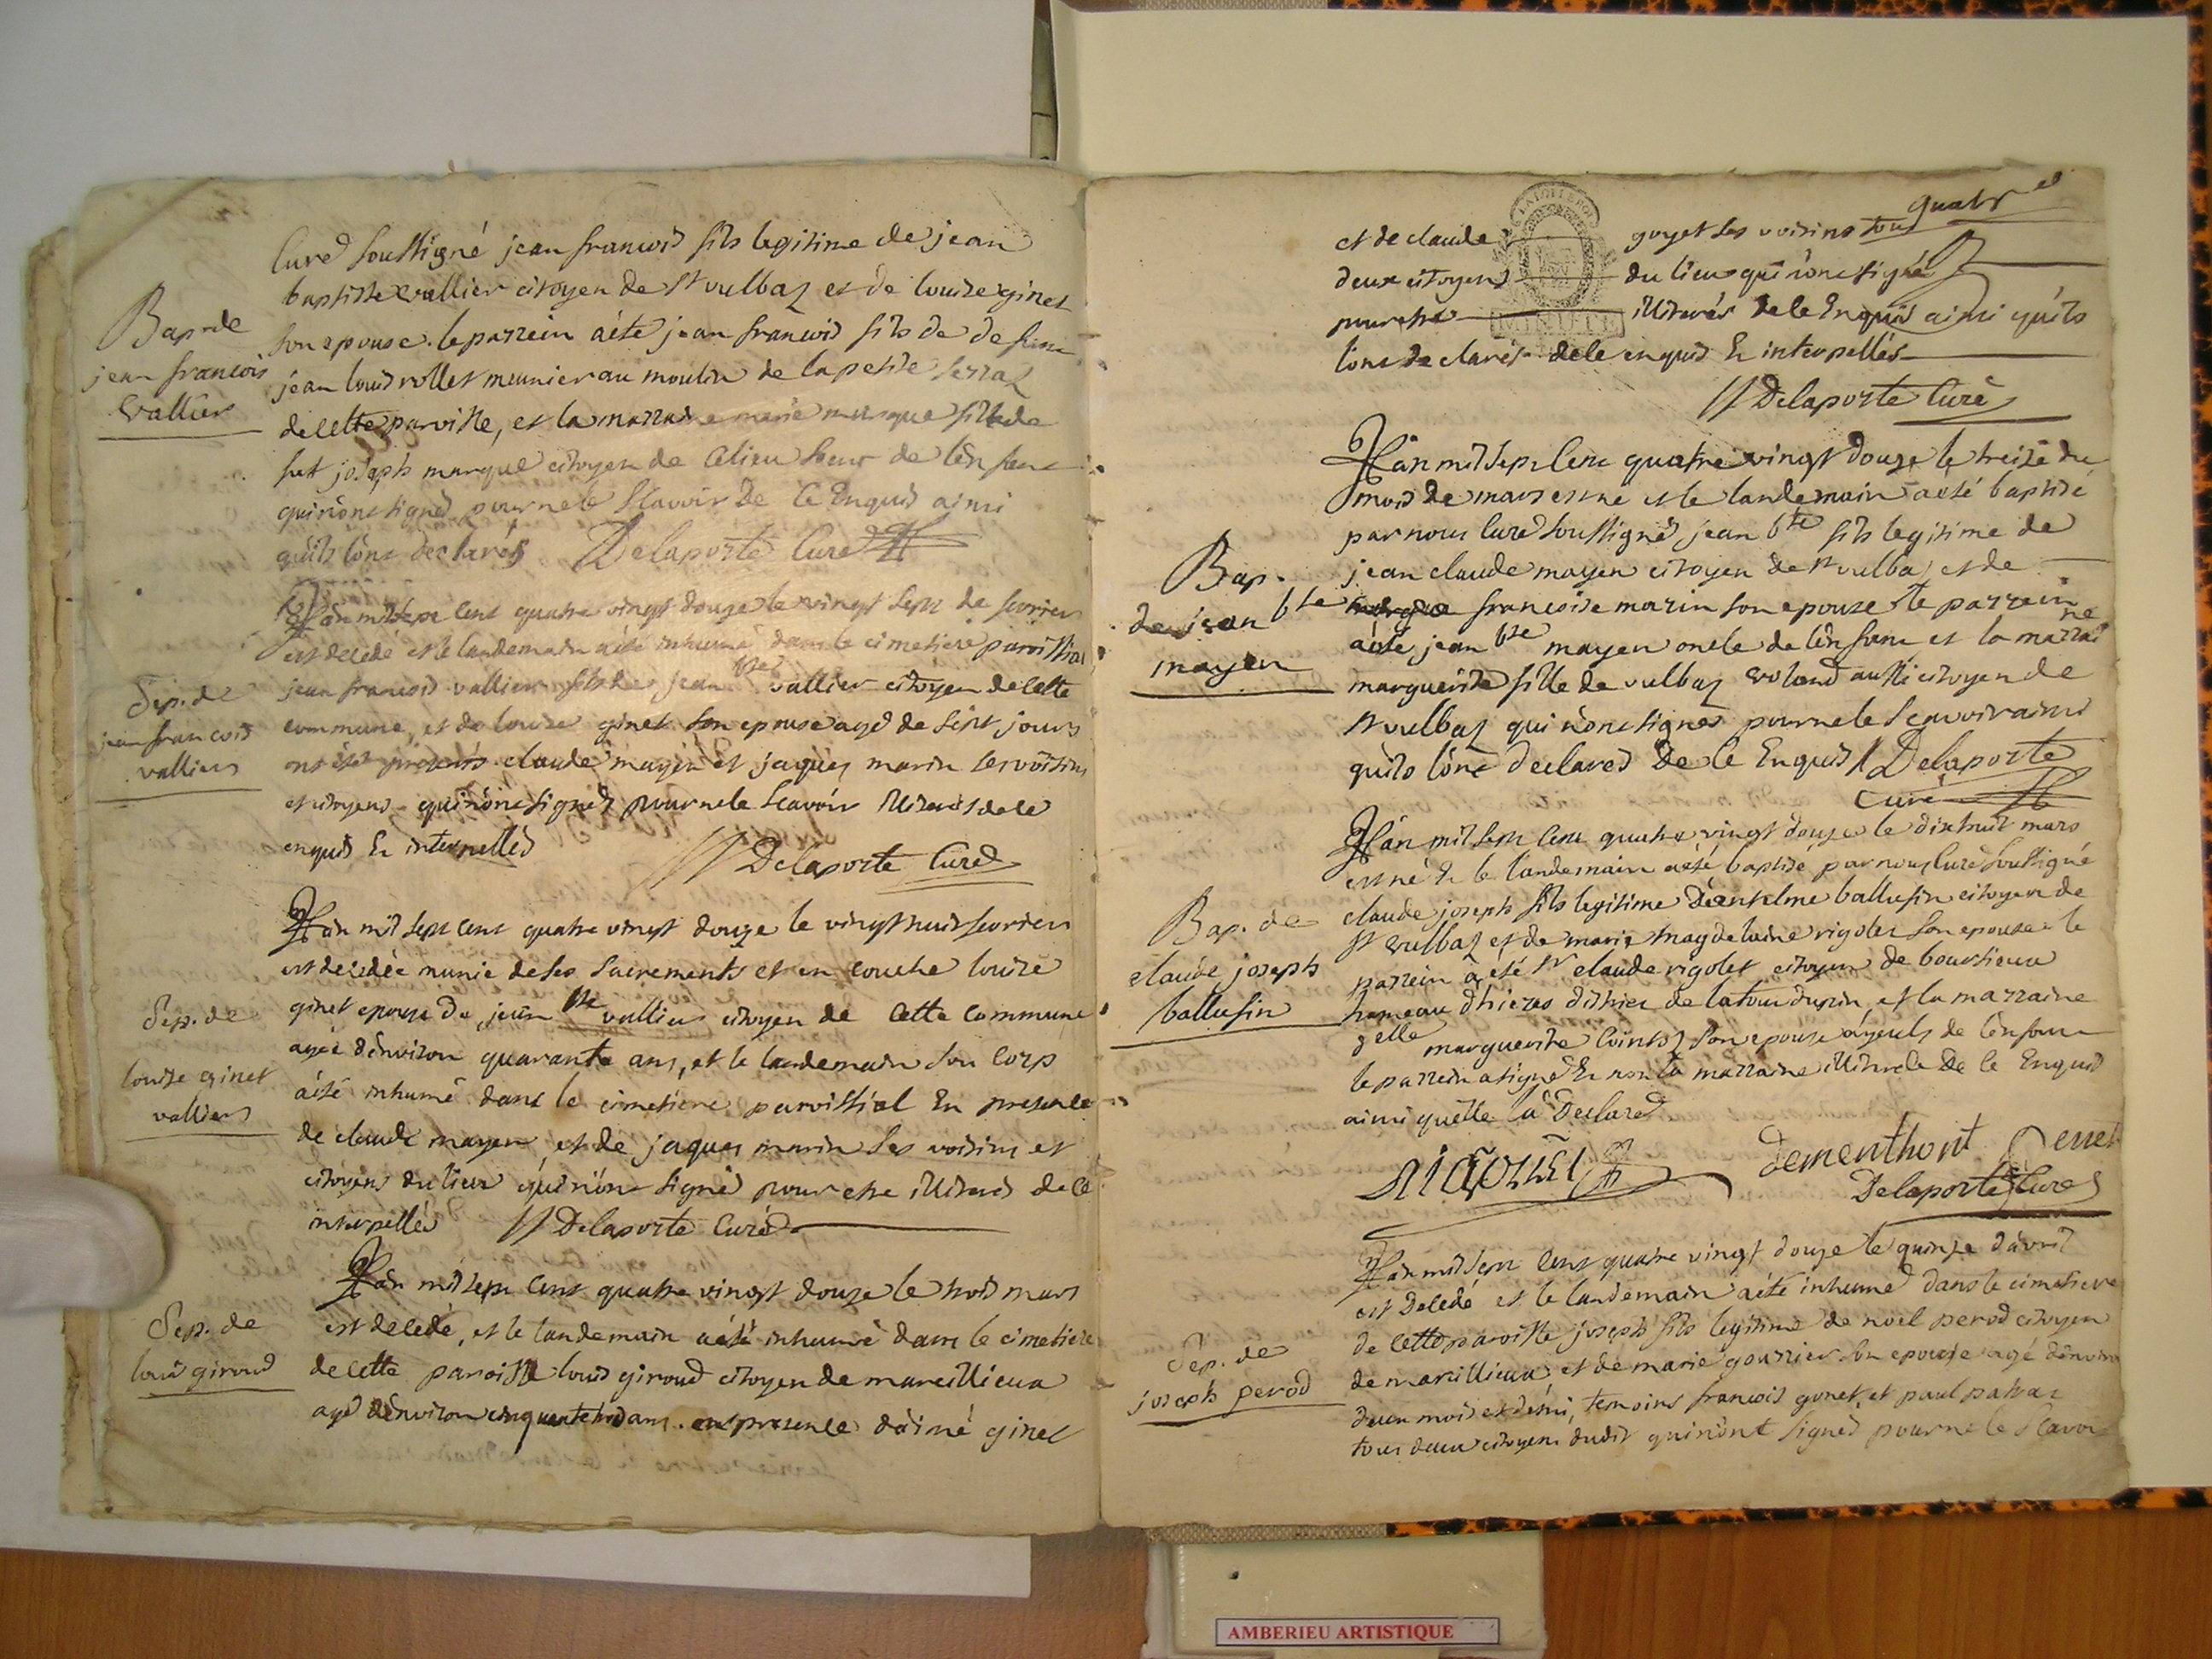 Curé soussigné jean francois fils legitime de jean
baptiste vallier citoyen de st vulbaz et de louise ginet
son epouse. le parrein a été jean francois fils de defunt
jean louis rollet meunier au moulin de la petite serraz
Bap. de
jean francois
vallier
de cette paroisse, et la marraine marie marque fille de
fut joseph marque citoyen de ce lieu soeur de l'enfant
qui n'ont signé pour ne le scavoir de ce enquis ainsi
qu'ils l'ont declarés Delaporte Curé
L'an mil sept cent quatre vingt douze le vingt sept de fevrier
est decedé et le landemain a été inhumé dans le cimetiere paroissial
Sep. de
jean francois
vallier
jean francois vallier fils de jean bte vallier citoyen de cette
commune, et de louise ginet son epouse agé de sept jours
ont été présents claude mayen et jaques marin ses voisins
et citoyens qui n'ont signés pour ne le scavoir illiterés de ce
enquis et interpellés // Delaporte Curé
L'an mil sept cent quatre vingt douze le vingt huit fevrier
est decedée munie de ses sacrements et en couche louise
Sep. de
louise ginet
vallier
ginet epouse de jean bte vallier citoyen de cette commune
agée d'environ quarante ans, et le landemain son corps
a été inhumé dans le cimetiere paroissial en presence
de claude mayen et de jaques marin ses voisins et
citoyens du lieu qui n'ont signé pour etre illiterés de ce
interpellés // Delaporte Curé
Sep. de
louis giroud
L'an mil sept cent quatre vingt douze le trois mars
est decedé, et le landemain a été inhumé dans le cimetiere
de cette paroisse louis giroud citoyen de marcillieux
agé d'environ cinquante trois ans. en presence d'aimé ginet
quatre
et de claude goyet ses voisins tous
deux citoyens du lieu qui n'ont signé
pour etre illiterés de ce enquis ainsi qu'ils
l'ont declarés de ce enquis et interpellés
// Delaporte Curé
L'an mil sept cent quatre vingt douze le treize du
mois de mars est né et le landemain a été baptisé
par nous curé soussigné jean bte fils legitime de
Bap.
de jean bte
mayen
jean claude mayen citoyen de st vulbaz et de
francoise marin son epouse le parrein
a été jean bte mayen oncle de l'enfant et la marraine
marguerite fille de vulbaz aussi citoyen de
st vulbaz qui n'ont signés pour ne le scavoir ainsi
qu'ils l'ont declarés de ce enquis // Delaporte
Curé
L'an mil sept cent quatre vingt douze le dix huit mars
est né et le landemain a été baptisé par nous curé soussigné
Bap. de
claude joseph
ballufin
claude joseph fils legitime d'antelme ballufin citoyen de
st vulbaz et de marie magdelaine rigolet son epouse le
parrein a été sr claude rigolet citoyen de
hameau d'hieres district de la tour dupin et la marraine
delle marguerite son epouse ayeuls de l'enfant
le parrein a signé et non la marraine illiterée de ce enquis
ainsi qu'elle l'a declaré
RIGOLLET dementhont
Delaporte Curé
L'an mil sept cent quatre vingt douze le quinze d'avril
est decedé et le landemain a été inhumé dans le cimetiere
Sep. de
joseph perod
de cette paroisse joseph fils legitime de noel perod citoyen
de marcillieux et de marie gourrier son epouse agé d'environ
deux mois et demi, temoins francois gonet, et paul
tous deux citoyens dudit qui n'ont signés pour ne le scavoir
AMBERIEU ARTISTIQUE